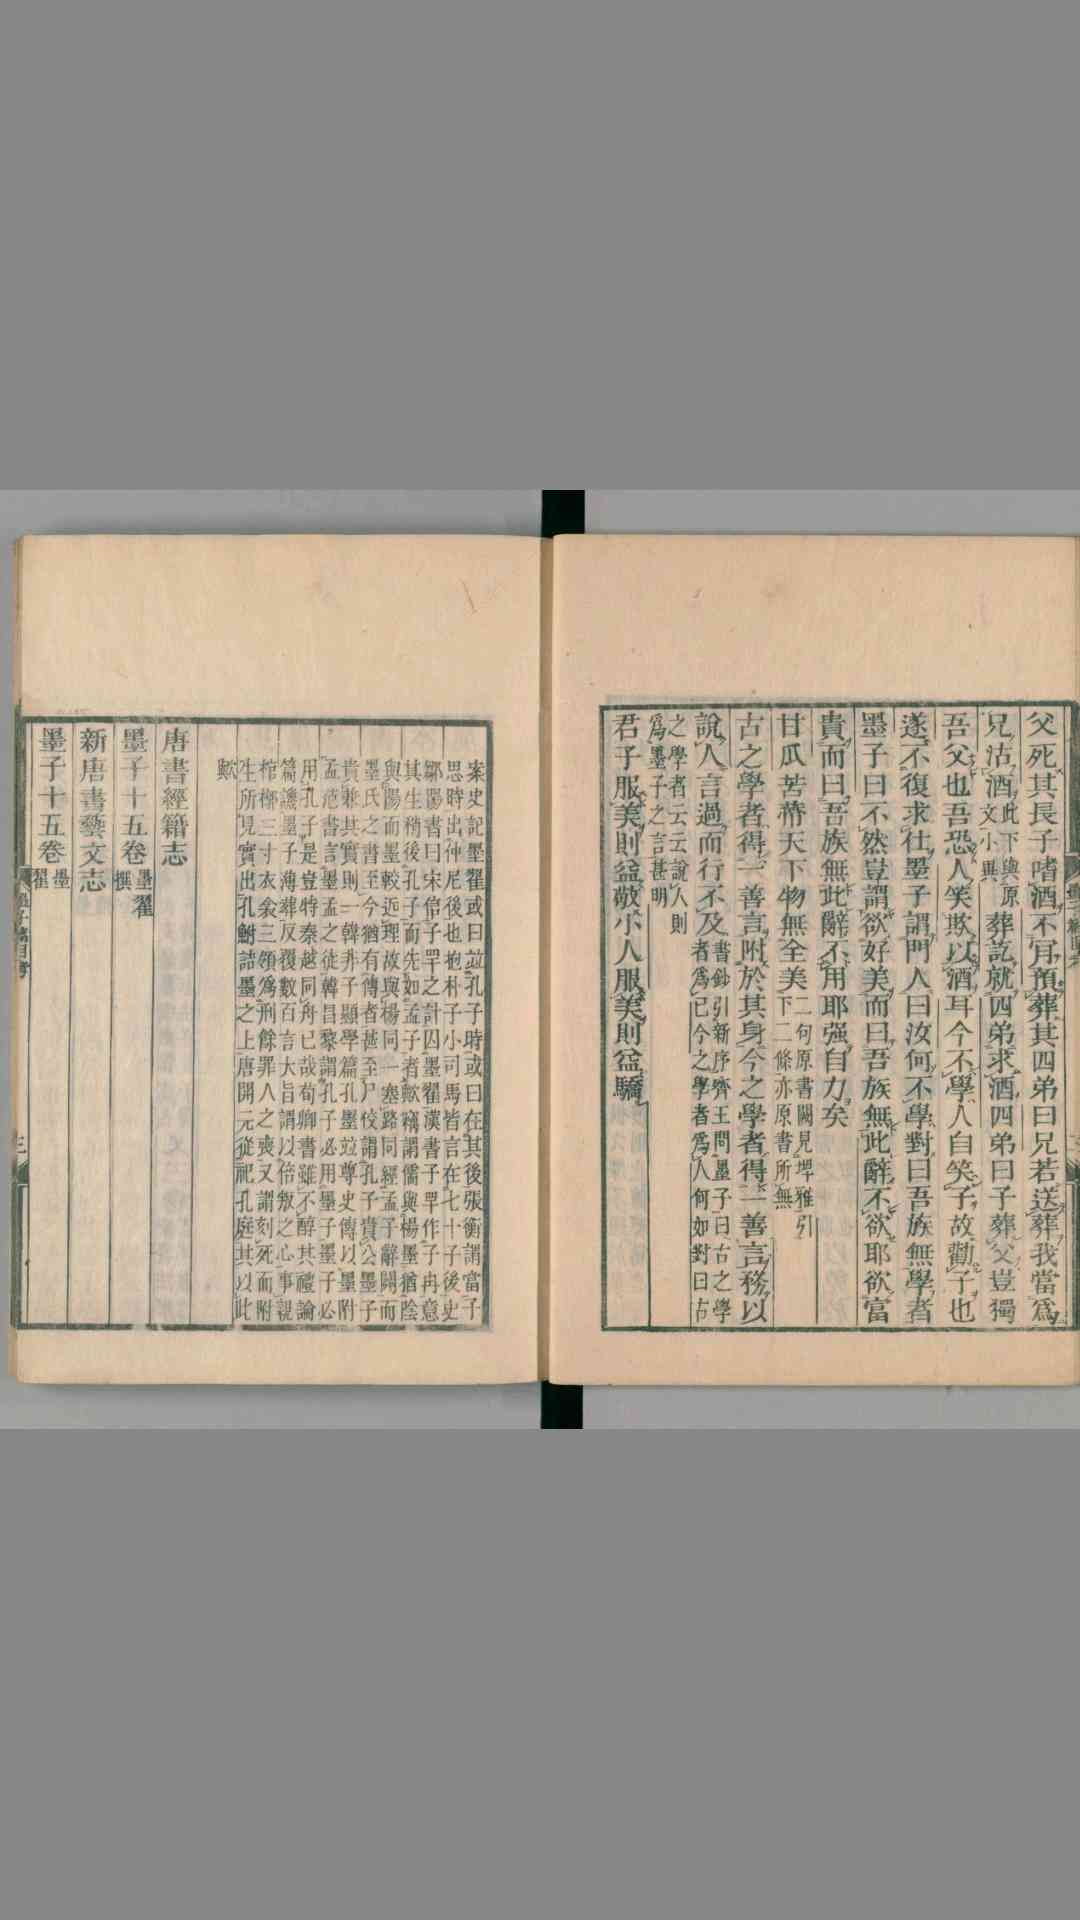 父死其長子嗜酒不肯預葬其四弟曰兄若送葬我當爲
兄沽酒此下與原文小異葬訖就四弟求酒四弟曰子葬父豈獨
吾父也吾恐人笑欺以酒耳今不學人自笑子故勸子也
遂不復求仕墨子謂門人曰汝何不學對曰吾族無學者
墨子曰不然豈謂欲好美而曰吾族無此辭不欲耶欲富
貴而曰吾族無此辭不用耶强自力矣
甘瓜苦蔕天下物無全美二句原書闕見埤雅引下二條亦原書所無
古之學者得一善言附於其身今之學者得一善言務以
說人言過而行不及書鈔引新序齊王問墨子曰古之學者爲己今之學者爲人何如對曰古
之學者云云說人則爲墨子之言甚明
君子服美則益敬小人服美則益驕
案史記墨翟或曰竝孔子時或曰在其後張衡謂當子
思時出仲尼後也抱朴子小司馬皆言在七十子後史
鄒陽書曰宋信子罕之計囚墨翟漢書子罕作子冉意
其生稍後孔子而先如孟子者歟竊謂儒與楊墨猶陰
與陽而墨較近理故與楊同一塞路同經孟子辭闢而
墨氏之書至今猶有傳者甚至尸佼謂孔子貴公墨子
貴兼其實則一韓非子顯學篇孔墨竝尊史傳以墨附
孟范書言墨孟之徒韓昌黎謂孔子必用墨子墨子必
用孔子是豈特秦越同舟已哉荀卿書雖不醇其禮論
篇譏墨子薄葬反覆數百言大旨謂以倍叛之心事親
棺槨三寸衣衾三領爲刑餘罪人之喪又謂刻死而附
生所見實出孔鮒詰墨之上唐開元從祀孔庭其以此
歟
唐書經籍志
墨子十五卷墨翟撰
新唐書藝文志
墨子十五卷墨翟